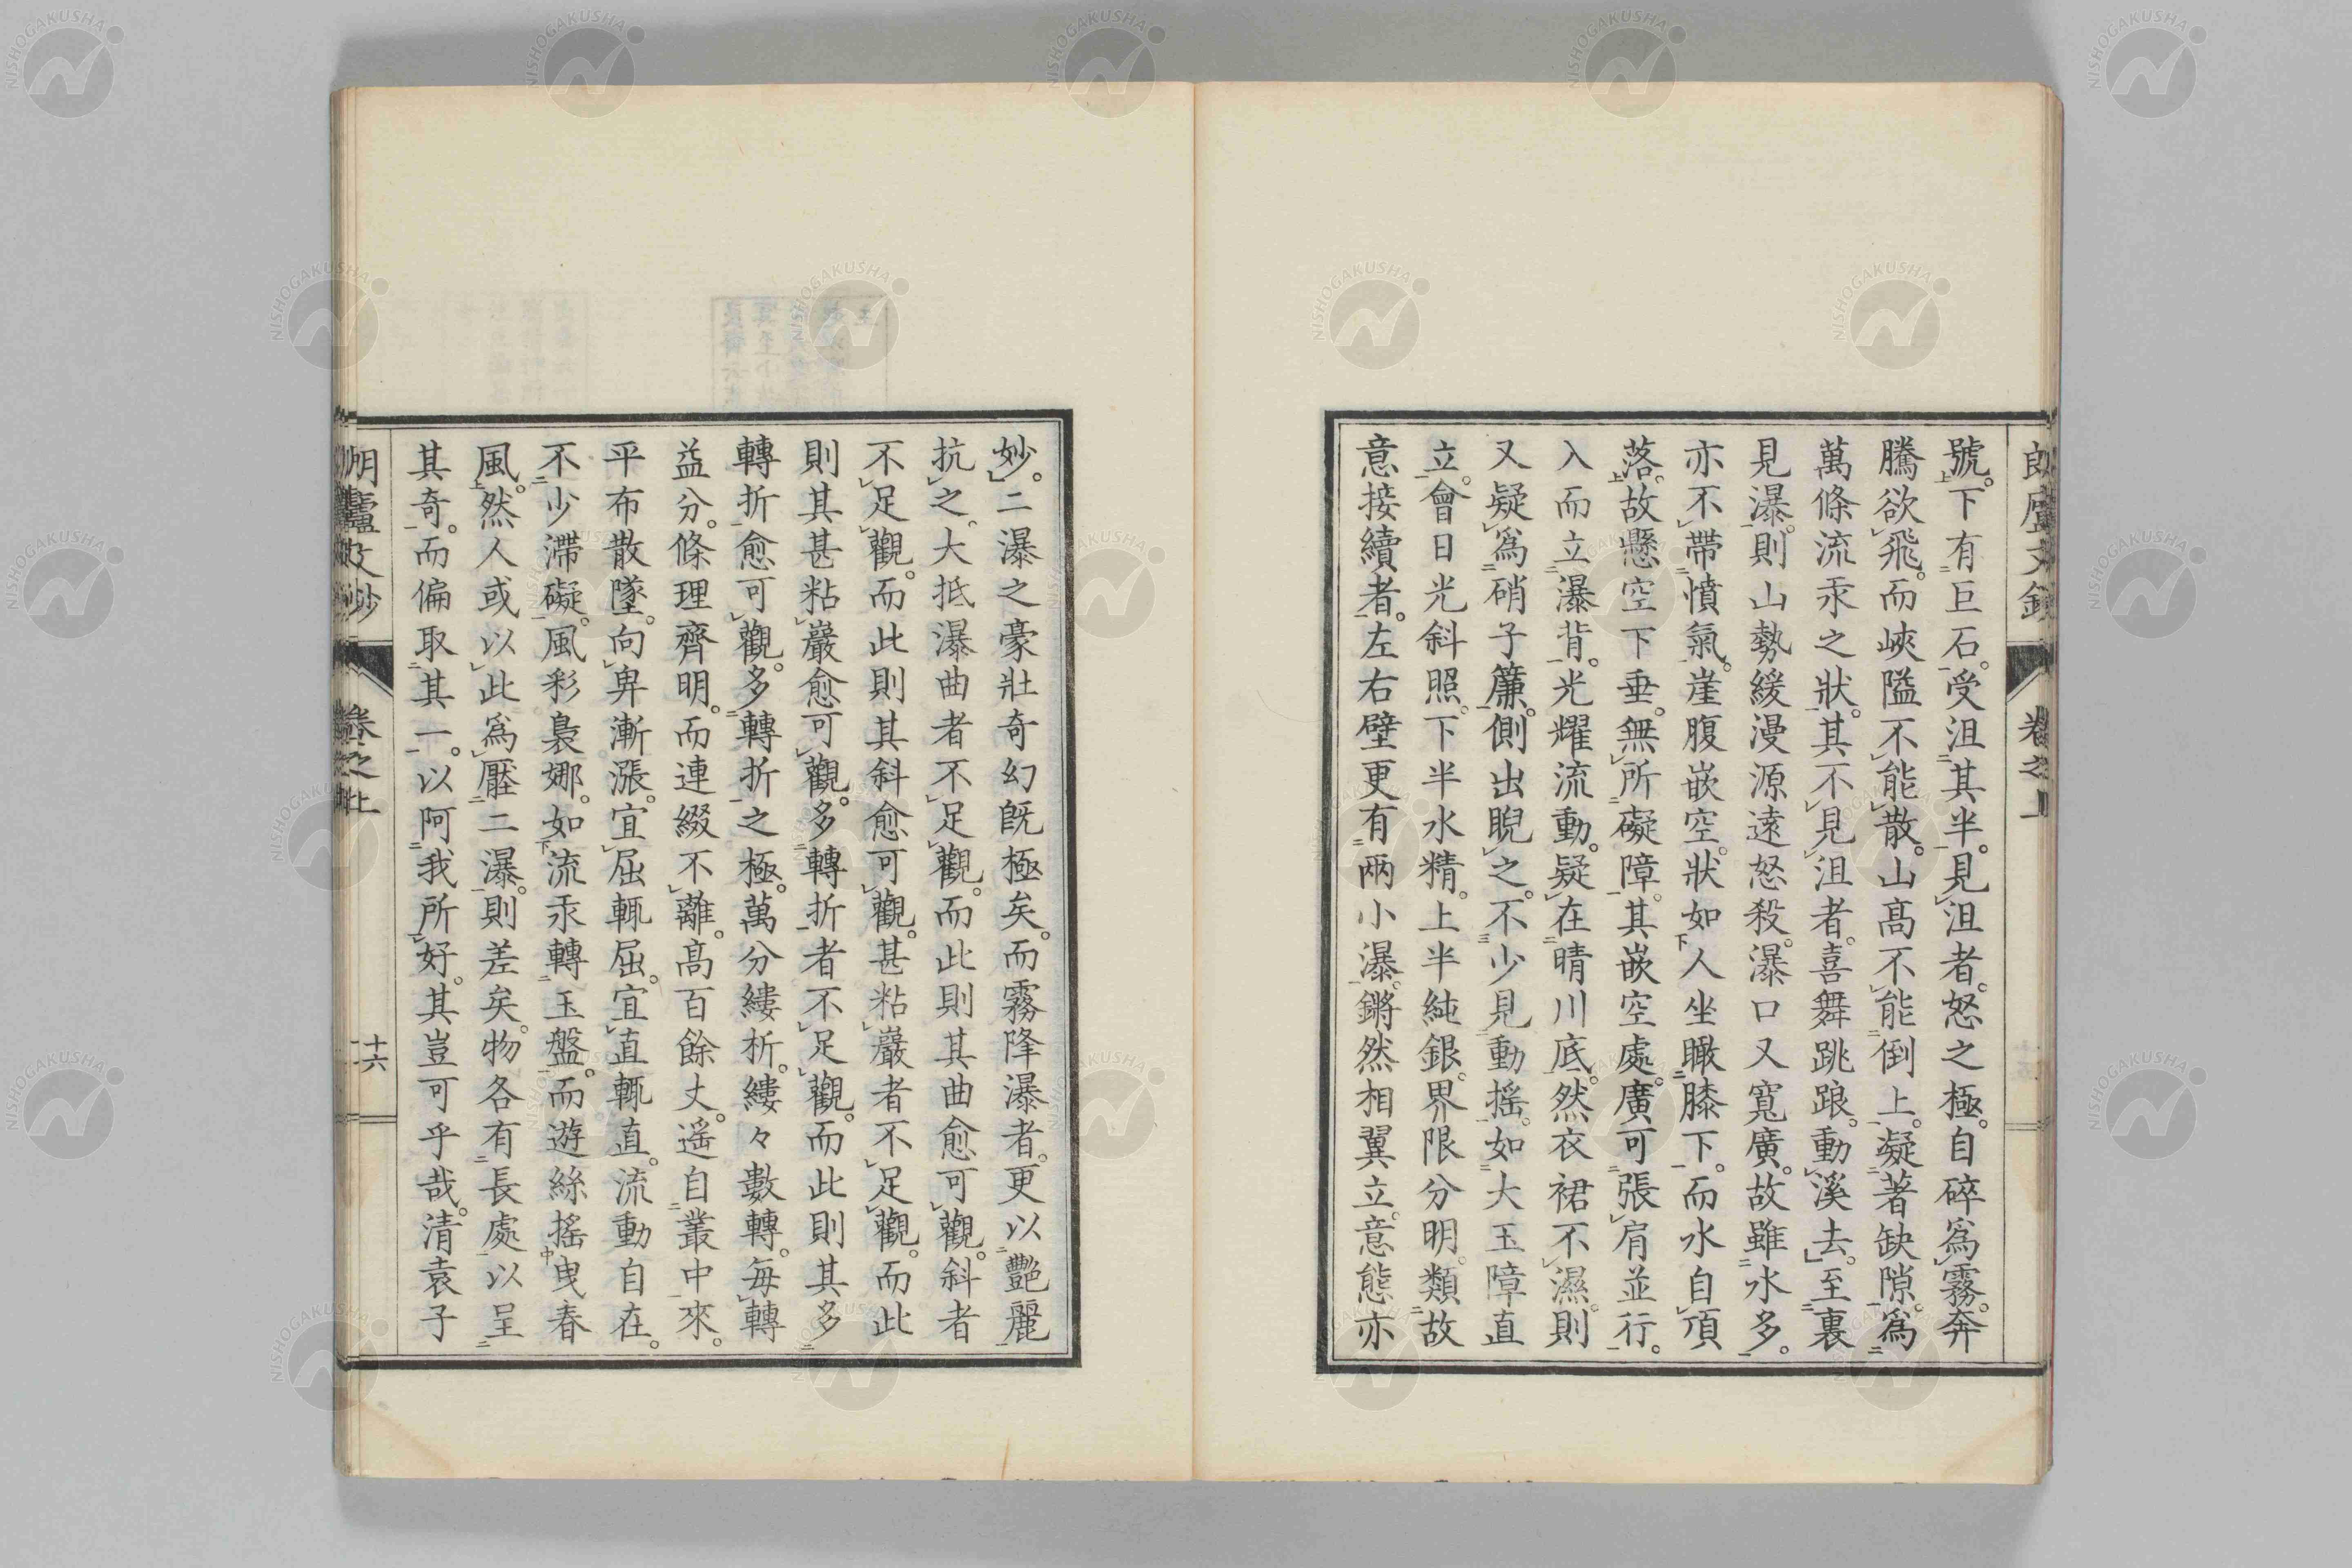 號。下有巨石。受沮其半。見沮者。怒之極。自碎爲霧。奔
騰欲飛。而峽隘不能散。山高不能倒上。凝著缺隙。爲
萬條流汞之狀。其不見沮者。喜舞跳踉。動溪去。至裏
見瀑。則山勢緩漫源遠怒殺。瀑口又寬廣。故雖水多。
亦不帶憤氣。崖腹嵌空。狀如人坐瞰膝下。而水自頂
落。故懸空下垂。無所礙障。其嵌空處。廣可張肩並行。
入而立瀑背。光耀流動。疑在晴川底。然衣裙不濕。則
又疑爲硝子簾。側出睨之。不少見動搖。如大玉障直
立。會日光斜照。下半水精。上半純銀。界限分明。類故
意接續者。左右壁更有兩小瀑。鏘然相翼立。意態亦
妙。二瀑之豪壯奇幻既極矣。而霧降瀑者。更以艷麗
抗之。大抵瀑曲者不足觀。而此則其曲愈可觀。斜者
不足觀。而此則其斜愈可觀。甚粘巖者不足觀。而此
則其甚粘巖愈可觀。多轉折者不足觀。而此則其多
轉折愈可觀。多轉折之極。萬分縷析。縷々數轉。每轉
益分。條理齊明。而連綴不離。高百餘丈。遙自叢中來。
平布散墜。向卑漸漲。宜屈輒屈。宜直輒直。流動自在。
不少滯礙。風彩裊娜。如流汞轉玉盤。而遊絲搖曳春
風。然人或以此爲壓二瀑。則差矣。物各有長處以呈
其奇。而偏取其一。以阿我所好。其豈可乎哉。清袁子
朗廬文鈔
卷之上
十六
NISHOGAKUSHA